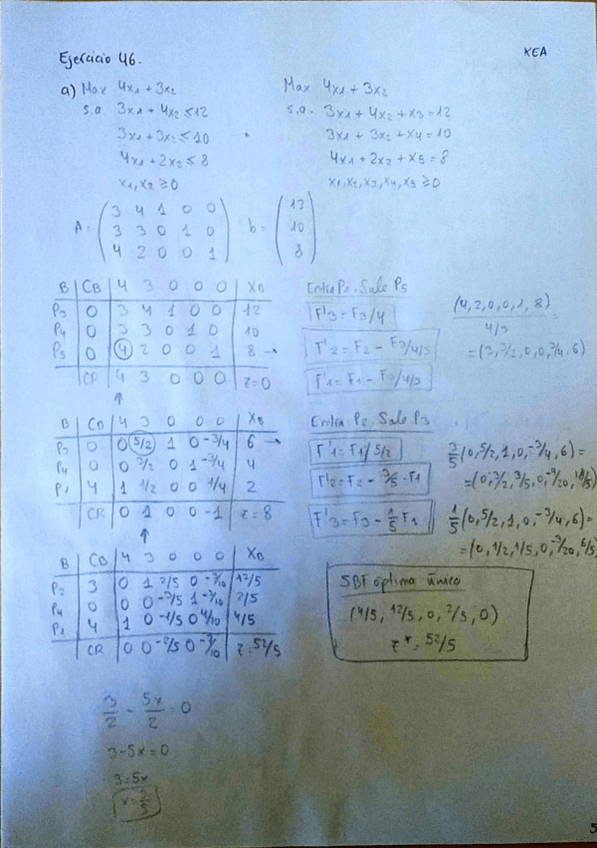 Ejercicio 46.
KEA
a) Max 4x1 + 3x2
s.a 3x1 + 4x2 ≤ 12
3x1 + 3x2 ≤ 10
4x1 + 2x2 ≤ 8
x1, x2 ≥ 0
Max 4x1 + 3x2
s.a. 3x1 + 4x2 + x3 = 12
3x1 + 3x2 + x4 = 10
4x1 + 2x2 + x5 = 8
x1, x2, x3, x4, x5 ≥ 0
A = ( 3 4 1 0 0
3 3 0 1 0
4 2 0 0 1 )
b = ( 12
10
8 )
B | CB | 4 3 0 0 0 | XB
P3 | 0 | 3 4 1 0 0 | 12
P4 | 0 | 3 3 0 1 0 | 10
P5 | 0 | 4 2 0 0 1 | 8 →
CR | 4 3 0 0 0 | z=0
↑
Entra P1. Sale P5
F'3 = F3/4
F'2 = F2 - F3/4/3
F'1 = F1 - F3/4/3
(4, 2, 0, 0, 1, 8)
4/3
=
= (3, 3/2, 0, 0, 3/4, 6)
B | CB | 4 3 0 0 0 | XB
P3 | 0 | 0 5/2 1 0 -3/4 | 6 →
P4 | 0 | 0 3/2 0 1 -3/4 | 4
P1 | 4 | 1 1/2 0 0 1/4 | 2
CR | 0 1 0 0 -1 | z=8
↑
Entra P2. Sale P3
F'1 = F1/5/2
F'2 = F2 - 3/5 · F1
F'3 = F3 - 1/5 F1
3/5 (0, 5/2, 1, 0, -3/4, 6) =
= (0, 3/2, 3/5, 0, -9/20, 18/5)
1/5 (0, 5/2, 1, 0, -3/4, 6) =
= (0, 1/2, 1/5, 0, -3/20, 6/5)
B | CB | 4 3 0 0 0 | XB
P2 | 3 | 0 1 2/5 0 -3/10 | 12/5
P4 | 0 | 0 0 -3/5 1 -3/10 | 2/5
P1 | 4 | 1 0 -1/5 0 4/10 | 4/5
CR | 0 0 -2/5 0 -7/10 | z = 52/5
SBF óptima única
(4/5, 12/5, 0, 2/5, 0)
z* = 52/5
3/2 - 5x/2 = 0
3 - 5x = 0
3 = 5x
x = 3/5
5